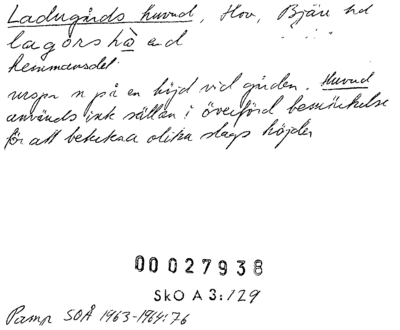 Ladugårds huvud, Hov, Bjäre hd
lagårshå ed
hemmansdel
urspr n på en höjd vid gården. Huvud
används ick sällan i överförd bemärkelse
för att beteckna olika slags höjder
00027938
SkO A 3:129
Pamp SOÅ 1963-1964:76